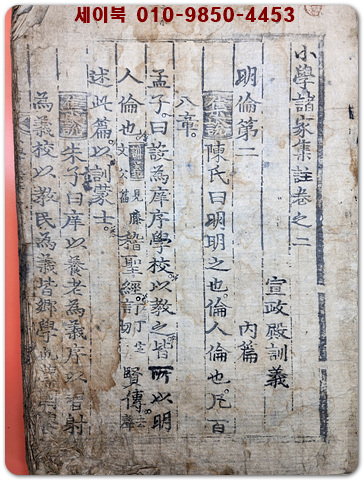 세이북 010-9850-4453
小學諸家集註卷之二
宣政殿訓義
明倫第二 內篇
集說 陳氏曰明明之也倫人倫也凡百
八章
孟子曰設為庠序學校以教之皆所以明
人倫也 見滕文公篇 稽聖經訂賢傳
述此篇以訓蒙士
集說 朱子曰庠以養老為義序以習射
為義校以教民為義皆鄉學也